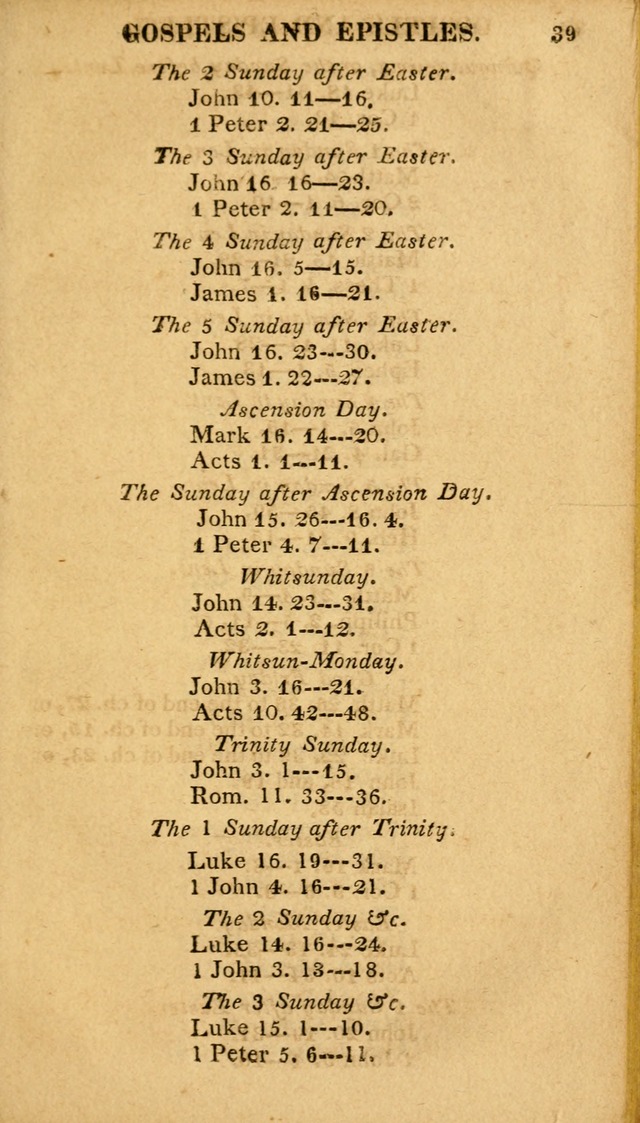 GOSPELS AND EPISTLES. 39
The 2 Sunday after Easter.
John 10. 11—16.
1 Peter 2. 21—25.
The 3 Sunday after Easter.
John 16 16—23.
1 Peter 2. 11—20.
The 4 Sunday after Easter.
John 16. 5—15.
James 1. 16—21.
The 5 Sunday after Easter.
John 16. 23---30.
James 1. 22---27.
Ascension Day.
Mark 16. 14---20.
Acts 1. 1---11.
The Sunday after Ascension Day.
John 15. 26---16. 4.
1 Peter 4. 7---11.
Whitsunday.
John 14. 23---31.
Acts 2. 1---12.
Whitsun-Monday.
John 3. 16---21.
Acts 10. 42---48.
Trinity Sunday.
John 3. 1---15.
Rom. 11. 33---36.
The 1 Sunday after Trinity.
Luke 16. 19---31.
1 John 4. 16---21.
The 2 Sunday &c.
Luke 14. 16---24.
1 John 3. 13---18.
The 3 Sunday &c.
Luke 15. 1---10.
1 Peter 5. 6---11.